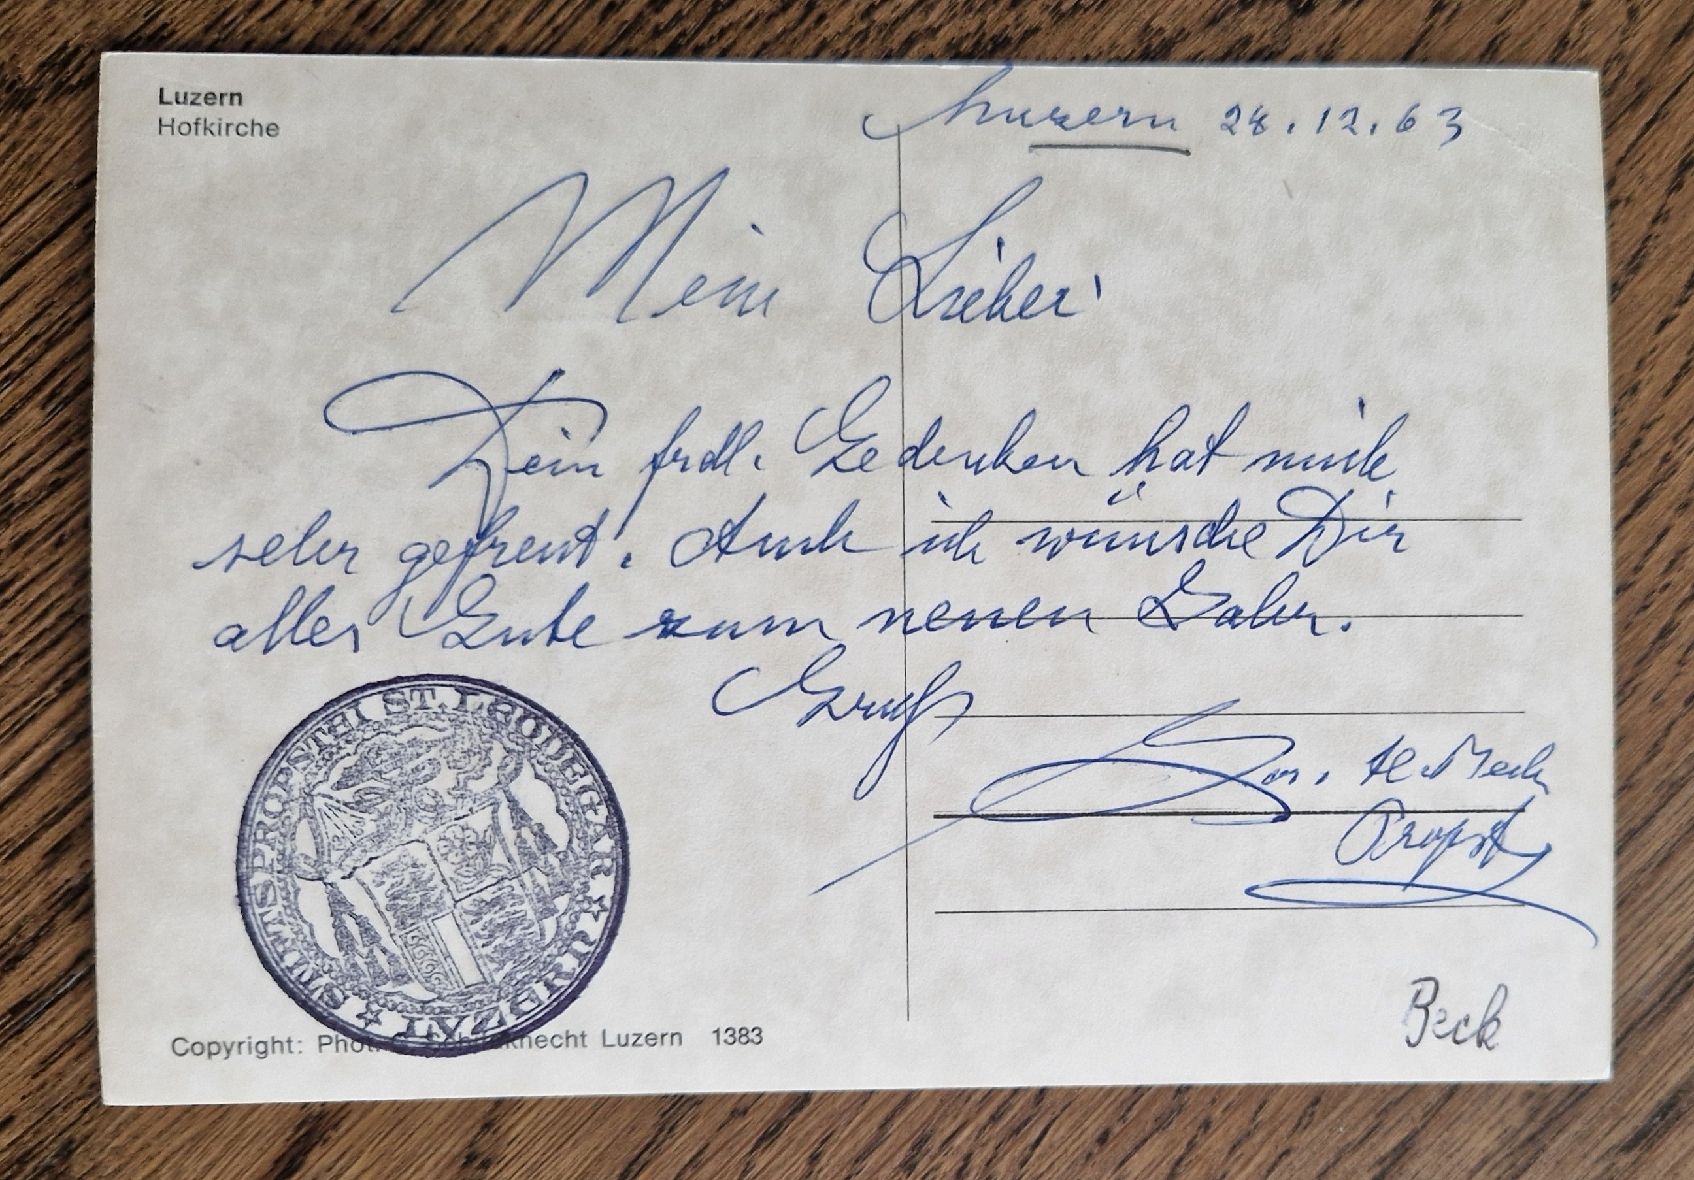 Luzern
Hofkirche
Luzern 28.12.63
Mein Lieber!
Dein frdl. Gedenken hat mich
sehr gefreut. Auch ich wünsche Dir
alles Gute zum neuen Jahr.
Gruß
Jos. Al. Beck
Propst
STIFTSPROPSTEI ST. LEODEGAR
LUZERN
Copyright: Photo Luzern 1383
Beck